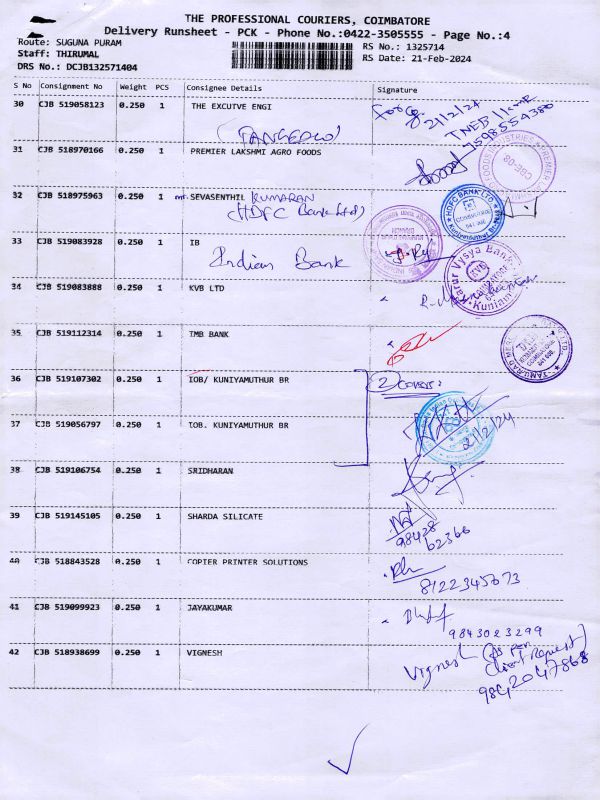 THE PROFESSIONAL COURIERS, COIMBATORE
Delivery Runsheet - PCK - Phone No.:0422-3505555 - Page No.:4
Route: SUGUNA PURAM
RS No.: 1325714
Staff: THIRUMAL
RS Date: 21-Feb-2024
DRS No.: DCJB132571404
S No Consignment No Weight PCS Consignee Details Signature
30 CJB 519058123 0.250 1 THE EXCUTVE ENGI
For 21/2/24
TNEB
9598554380
(TANGEDCO)
31 CJB 518970166 0.250 1 PREMIER LAKSHMI AGRO FOODS
CBE-08
32 CJB 518975963 0.250 1 mr. SEVASENTHIL KUMARAN
(HDFC Bank Ltd)
HDFC BANK LTD.
33 CJB 519083928 0.250 1 IB
Indian Bank
Karur Vysya Bank
KVB
Kuniam
34 CJB 519083888 0.250 1 KVB LTD
35 CJB 519112314 0.250 1 TMB BANK
TAMILNAD MER
36 CJB 519107302 0.250 1 IOB/ KUNIYAMUTHUR BR
2 Covers:
37 CJB 519056797 0.250 1 IOB. KUNIYAMUTHUR BR
21/2/24
38 CJB 519106754 0.250 1 SRIDHARAN
39 CJB 519145105 0.250 1 SHARDA SILICATE
98428
62366
40 CJB 518843528 0.250 1 COPIER PRINTER SOLUTIONS
8122345673
41 CJB 519099923 0.250 1 JAYAKUMAR
9843023299
42 CJB 518938699 0.250 1 VIGNESH
Vignesh (As per
Client Request)
9842047868